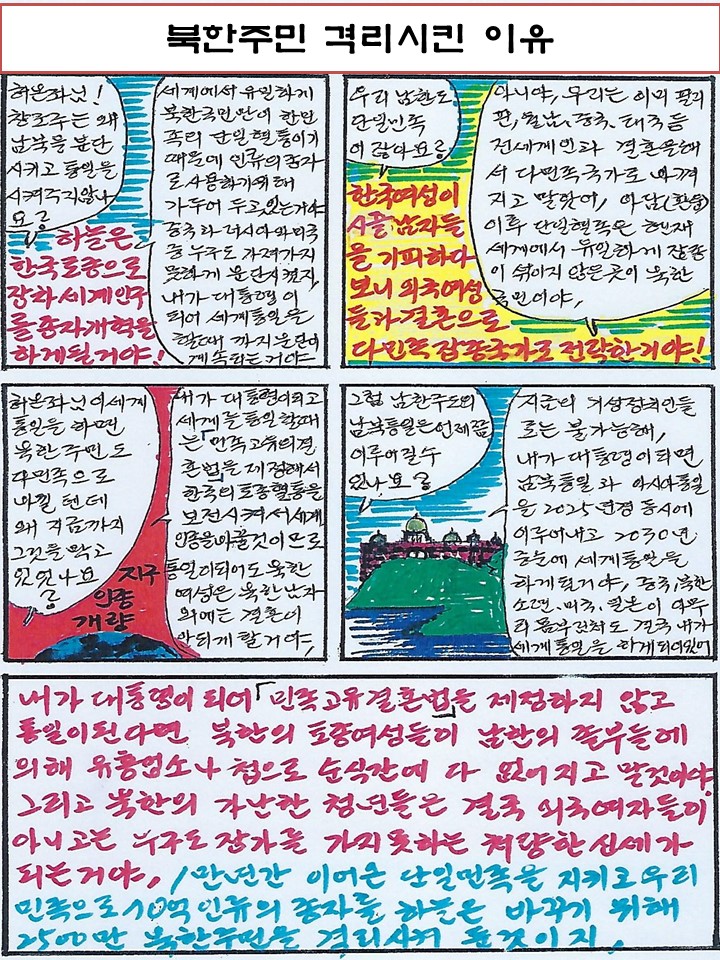 북한주민 격리시킨 이유
허본좌님!
창조주는 왜
남북을 분단
시키고 통일을
시켜주지않나
요?
하늘은
한국토종으로
장차세계인구
를종자개혁을
하게될거야!
세계에서 유일하게
북한국민만이 한민
족의 단일혈통이기
때문에 인류의 종자
로 사용하기위해
가두어 두고있는거야
중국과 러시아와 미국
중 누구도 가져가지
못하게 분단시켰지,
내가 대통령이
되어 세계통일을
할때 까지 분단이
계속되는거야
우리 남한도
단일민족
이잖아요?
한국여성이
시골남자들
을 기피하다
보니 외국여성
들과결혼으로
다민족잡종국가로 전락한거야!
아니야, 우리는 이미 필리
핀, 월남, 중국, 태국등
전세계인과 결혼을해
서 다민족국가로 바뀌
지고 말았어,
이후 단일혈족은 현재
세계에서 유일하게 잡종
이 섞이지 않은곳이 북한
국민이야,
허본좌님이세계
통일을 하면
북한주민도
다민족으로
바뀔텐데
왜 지금까지
그것을 막고
있었나요
?
지구
인종
개량
내가 대통령이되고
세계를 통일할때
는「민족고유의결
혼법」을 제정해서
한국의토종혈통을
보전시켜서세계
인종을바꿀것이므로
통일이되어도북한
여성은 북한남자
외에는 결혼이
안되게 할거야,
그럼 남한주도의
남북통일은언제쯤
이루어질수
있나요?
지금의 정치인들
로는 불가능해,
내가 대통령이되면
남북통일과 아시아통일
은 2025년경 동시에
이루어내고 2030년
중눈에 세계통일을
하게될거야, 중국, 북한
소련, 미국, 일본이 아무
리 몸부림쳐도 결국 내가
세계통일을 하게되어있어
내가 대통령이 되어「민족고유결혼법」을 제정하지 않고
통일이된다면 북한의 토종여성들이 남한의 졸부들에
의해 유흥업소나 첩으로 순식간에 다 없어지고 말것이야
그리고 북한의 가난한 청년들은 결국 외국여자들이
아니고는 누구도 장가를 가지못하는 처량한 신세가
되는거야, 1만년간 이어온 단일민족을 지키고우리
민족으로70억인류의 종자를 하늘은 바꾸기 위해
2500만 북한주민을 격리시켜 둔것이지,